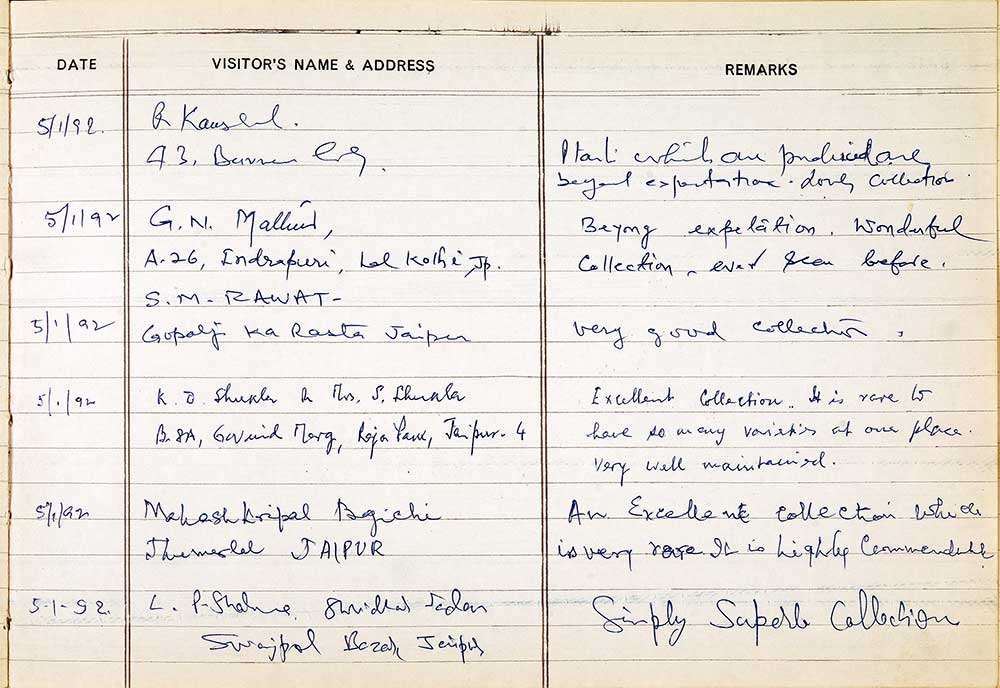 DATE VISITOR'S NAME & ADDRESS REMARKS
5/1/92. R Kaushal.
43,
which are produced are
beyond expectation. Lovely Collection.
5/1/92 G.N. Mathur, Beyong expetation. Wonderful
A-26, Indrapuri, Lal Kothi, Jp. Collection, ever seen before.
S.M. RAWAT-
5/1/92 Gopalji Ka Rasta Jaipur very good collection,
5/1/92 K. D. Shukla & Mrs. S. Shukla Excellent Collection. It is rare to
B.8A, Govind Marg, Raja Park, Jaipur-4 have so many varieties at one place.
Very well maintained.
5/1/92 Mahesh Kripal Bagichi An Excellent collection which
JAIPUR is very rare. It is highly Commendable
5-1-92. L. P. Sharma, Simply Superb Collection
Bazar, Jaipur